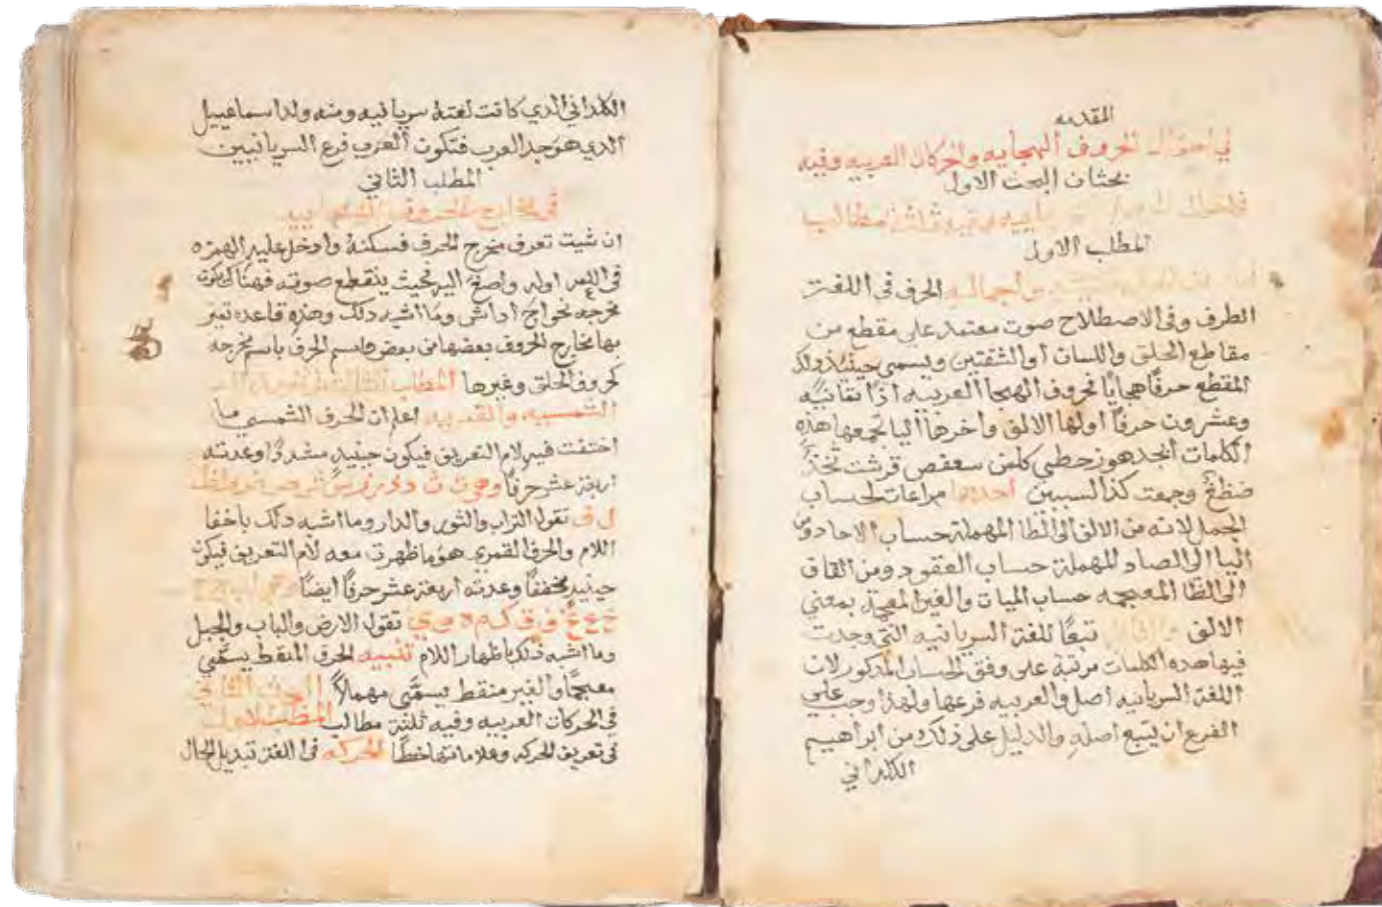 المقدمه
في احوال الحروف الهجايه والحركات العربيه وفيه
بحثان البحث الاول
في احوال الحروف وفيه ثلثة مطالب
المطلب الاول
الحرف في اللغة
الطرف وفي الاصطلاح صوت معتمد على مقطع من
مقاطع الحلق واللسان او الشفتين ويسمى حينيذ ذلك
المقطع حرفًا هجايًا فحروف الهجا العربيه اذًا ثمانيه
وعشرون حرفًا اولها الالف واخرها اليا تجمعها هذه
الكلمات ابجد هوز حطي كلمن سعفص قرشت ثخذ
ضظغ وجمعت كذا لسببين احدهما مراعات لحساب
الجمل لانه من الالف الى الطا المهملة حساب الاحاد ومن
اليا الى الصاد المهملة حساب العقود ومن القاف
الى الظا المعجمه حساب الميات والغين المعجمة بمعني
الالف والثاني تبعًا للغة السريانيه التي وجدت
فيها هده الكلمات مرتبة على وفق الحساب المدكور لان
اللغة السريانيه اصل والعربيه فرعها ولهذا وجب علي
الفرع ان يتبع اصله والدليل على ذلك من ابراهيم
الكلداني
الكلداني الدي كانت لغته سريانيه ومنه ولد اسماعيل
الدي هو جد العرب فتكون العرب فرع السريانيين
المطلب الثاني
في مخارج الحروف الهجاييه
ان شيت تعرف مخرج الحرف فسكنه وادخل عليه الهمزه
في اوله واصغ اليه فحيث ينقطع صوته فهناك يكون
مخرجه نحو اج اد اش وما اشبه دلك وهذه قاعده تميز
بها مخارج الحروف بعضها من بعض اسم الحرف باسم مخرجه
كحروف الحلق وغيرها المطلب الثالث في الحروف
الشمسيه والقمريه اعلم ان الحرف الشمسي ما
اختفت فيه لام التعريف فيكون حينيد مشددًا وعدته
اربعة عشر حرفًا وهي ت ث د ذ ر ز س ش ص ض ط ظ
ل ن تقول التراب والثور والدار وما اشبه دلك باخفا
اللام والحرف القمري هو ما ظهرت معه لام التعريف فيكون
حينيد مخففًا وعدته اربعة عشر حرفًا ايضًا وهي ا ب ج ح
خ ع غ ف ق ك م ه و ي تقول الارض والباب والجبل
وما اشبه ذلك باظهار اللام تنبيه الحرف المنقط يسمي
معجمًا والغير منقط يسمي مهملاً البحث الثاني
في الحركات العربيه وفيه ثلثة مطالب المطلب الاول
في تعريف الحركه وعلاماتها خطًا الحركه في اللغة تبديل الحال